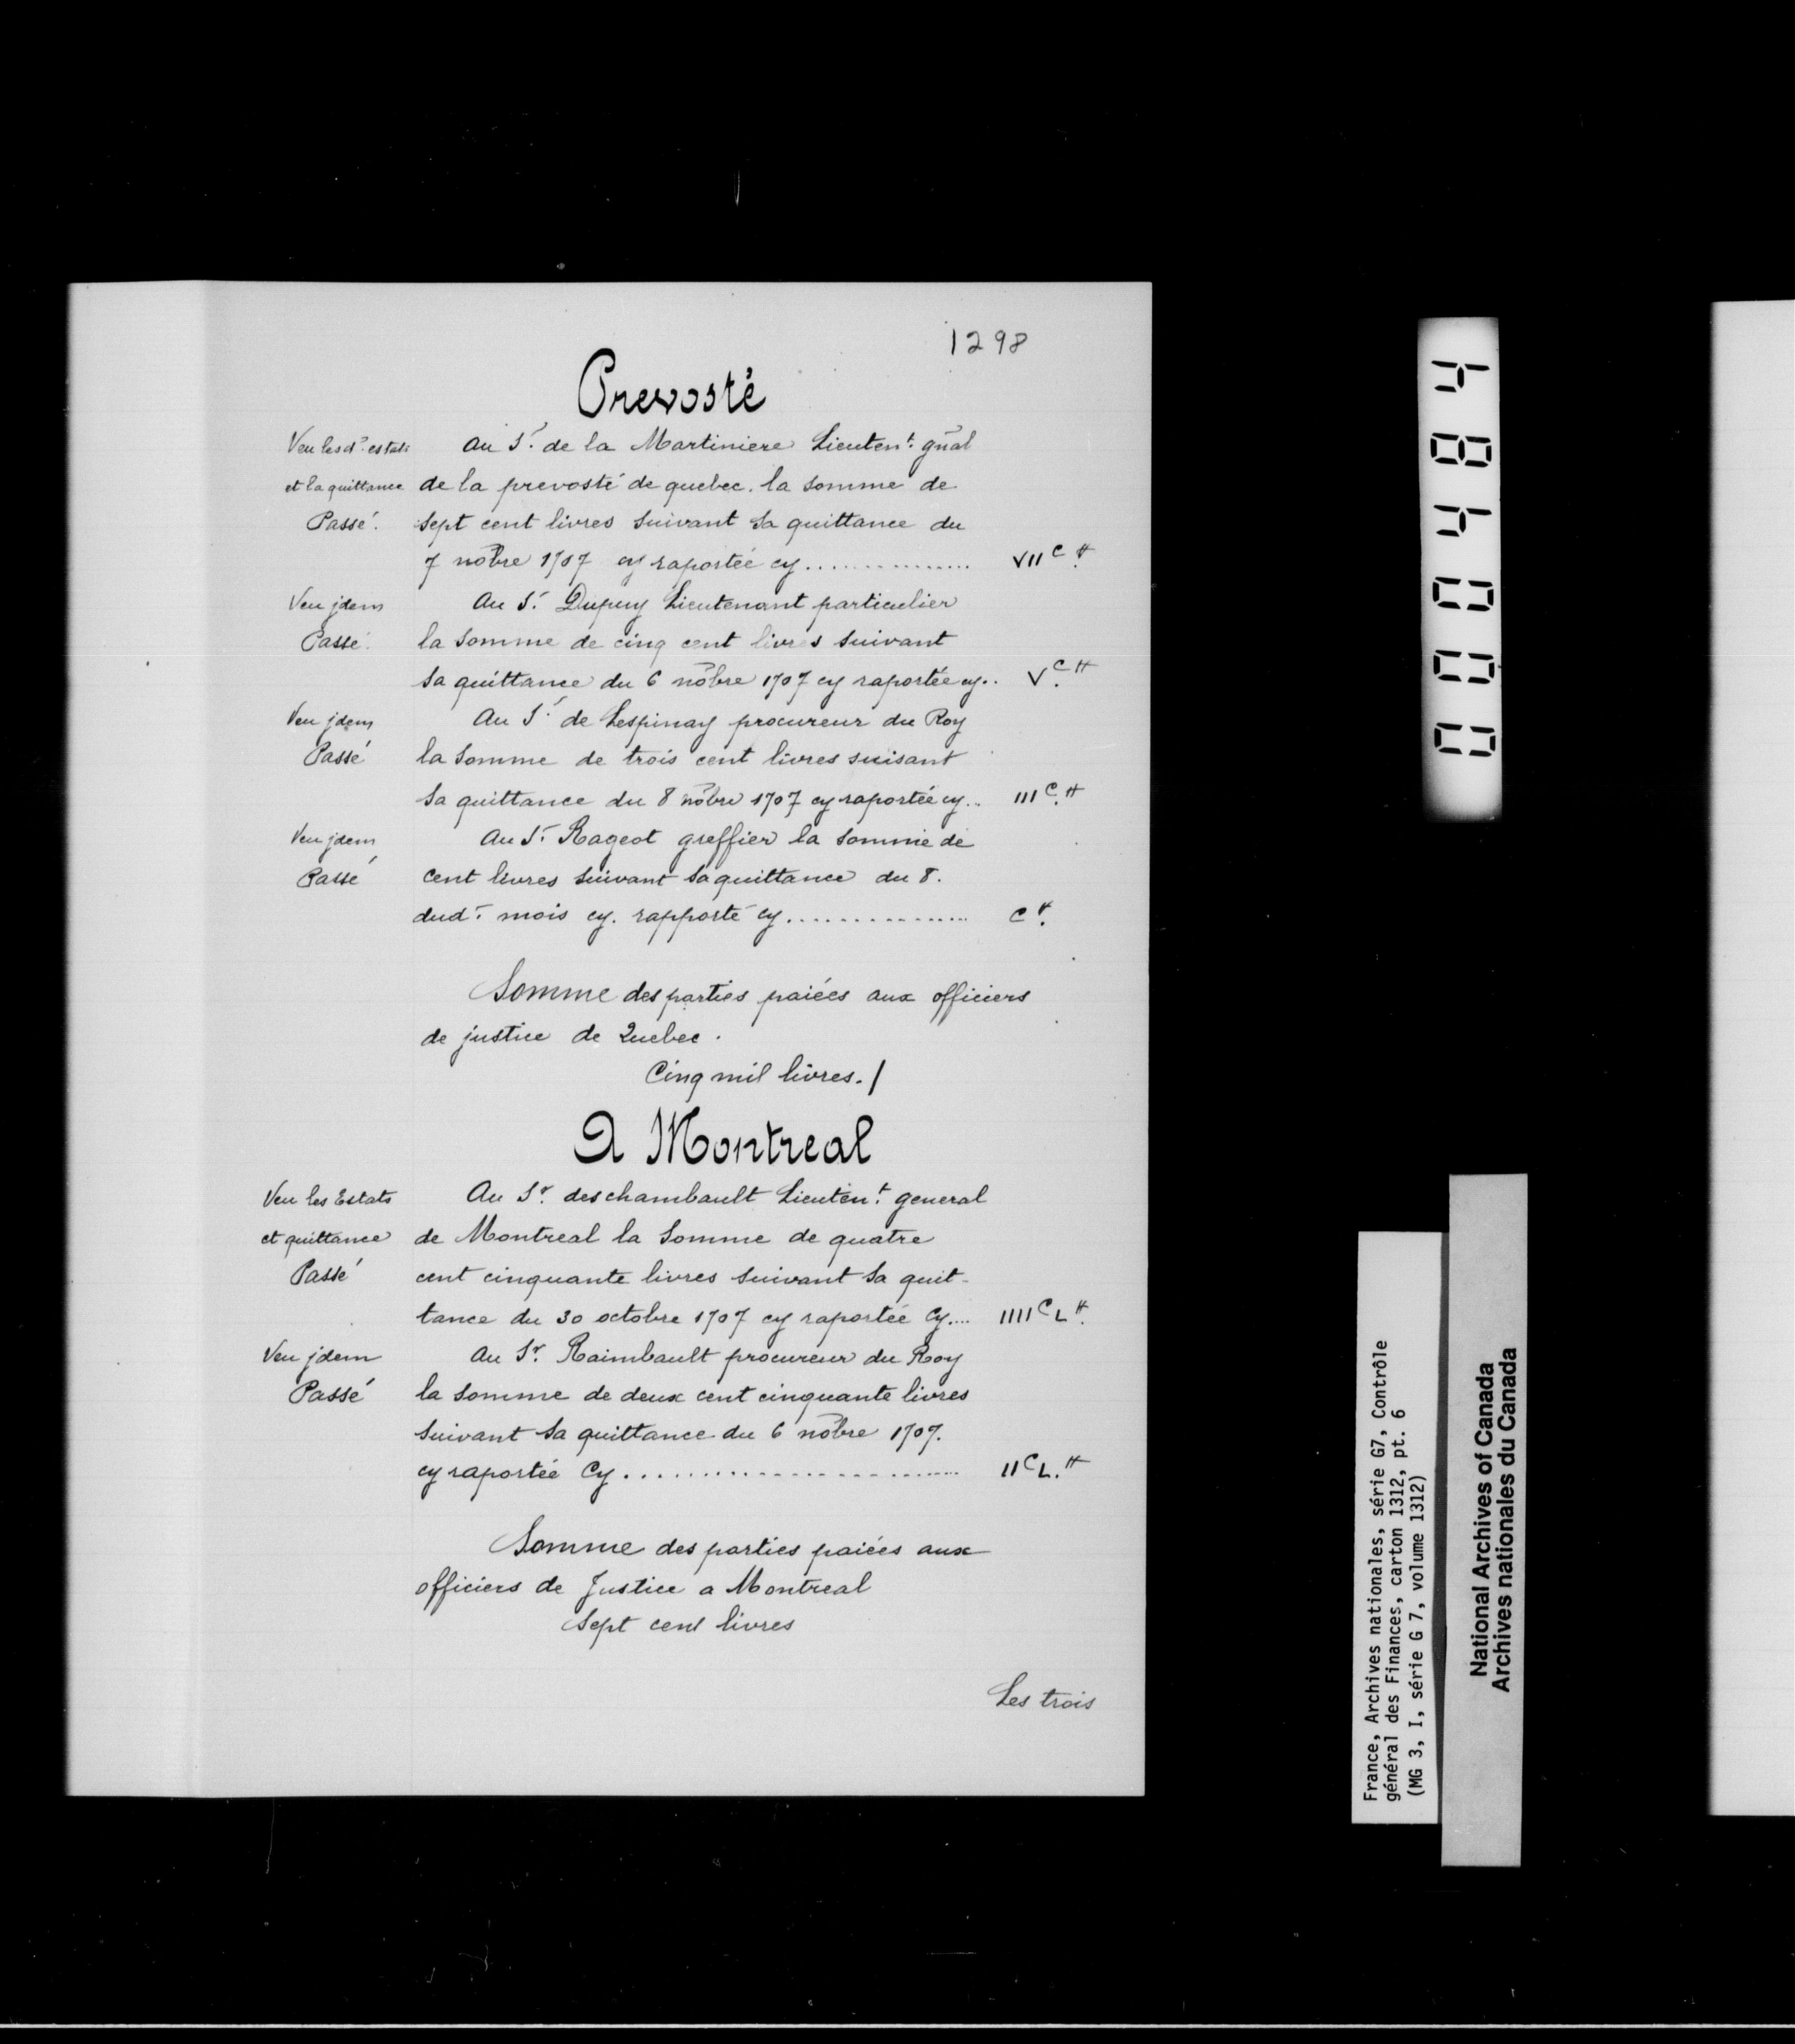 1298
Prevosté
Veu lesd.s estats Au Sr. de la Martiniere Lieuten.t gñal
et la quittance de la prevosté de quebec. la somme de
Passé. sept cent livres suivant sa quittance du
7 nõbre 1707 cy raportée cy............... VII C ₶.
Veu jdem Au Sr. Dupuy Lieutenant particulier
Passé. la somme de cinq cent livres suivant
sa quittance du 6 nõbre 1707 cy raportée cy.. V C. ₶
Veu jdem Au Sr. de Lespinay procureur du Roy
Passé la somme de trois cent livres suisant
sa quittance du 8 nõbre 1707 cy raportée cy.. III C. ₶
Veu jdem Au Sr. Rageot greffier la somme de
Passé cent livres suivant sa quittance du 8.
dud.t mois cy. rapporté cy............... C ₶.
Somme des parties paiées aux officiers
de justice de Quebec.
Cinq mil livres./
A Montreal
Veu les Estats Au Sr. deschambault Lieuten.t general
et quittance de Montreal la somme de quatre
Passé cent cinquante livres suivant sa quit-
tance du 30 octobre 1707 cy raportée Cy.... IIII C L ₶.
Veu jdem Au Sr. Raimbault procureur du Roy
Passé la somme de deux cent cinquante livres
suivant sa quittance du 6 nõbre 1707.
cy raportée Cy........................ II C L. ₶
Somme des parties paiées aux
officiers de Justice a Montreal
Sept cent livres
Les trois
000484
France, Archives nationales, série G7, Contrôle
général des Finances, carton 1312, pt. 6
(MG 3, I, série G 7, volume 1312)
National Archives of Canada
Archives nationales du Canada